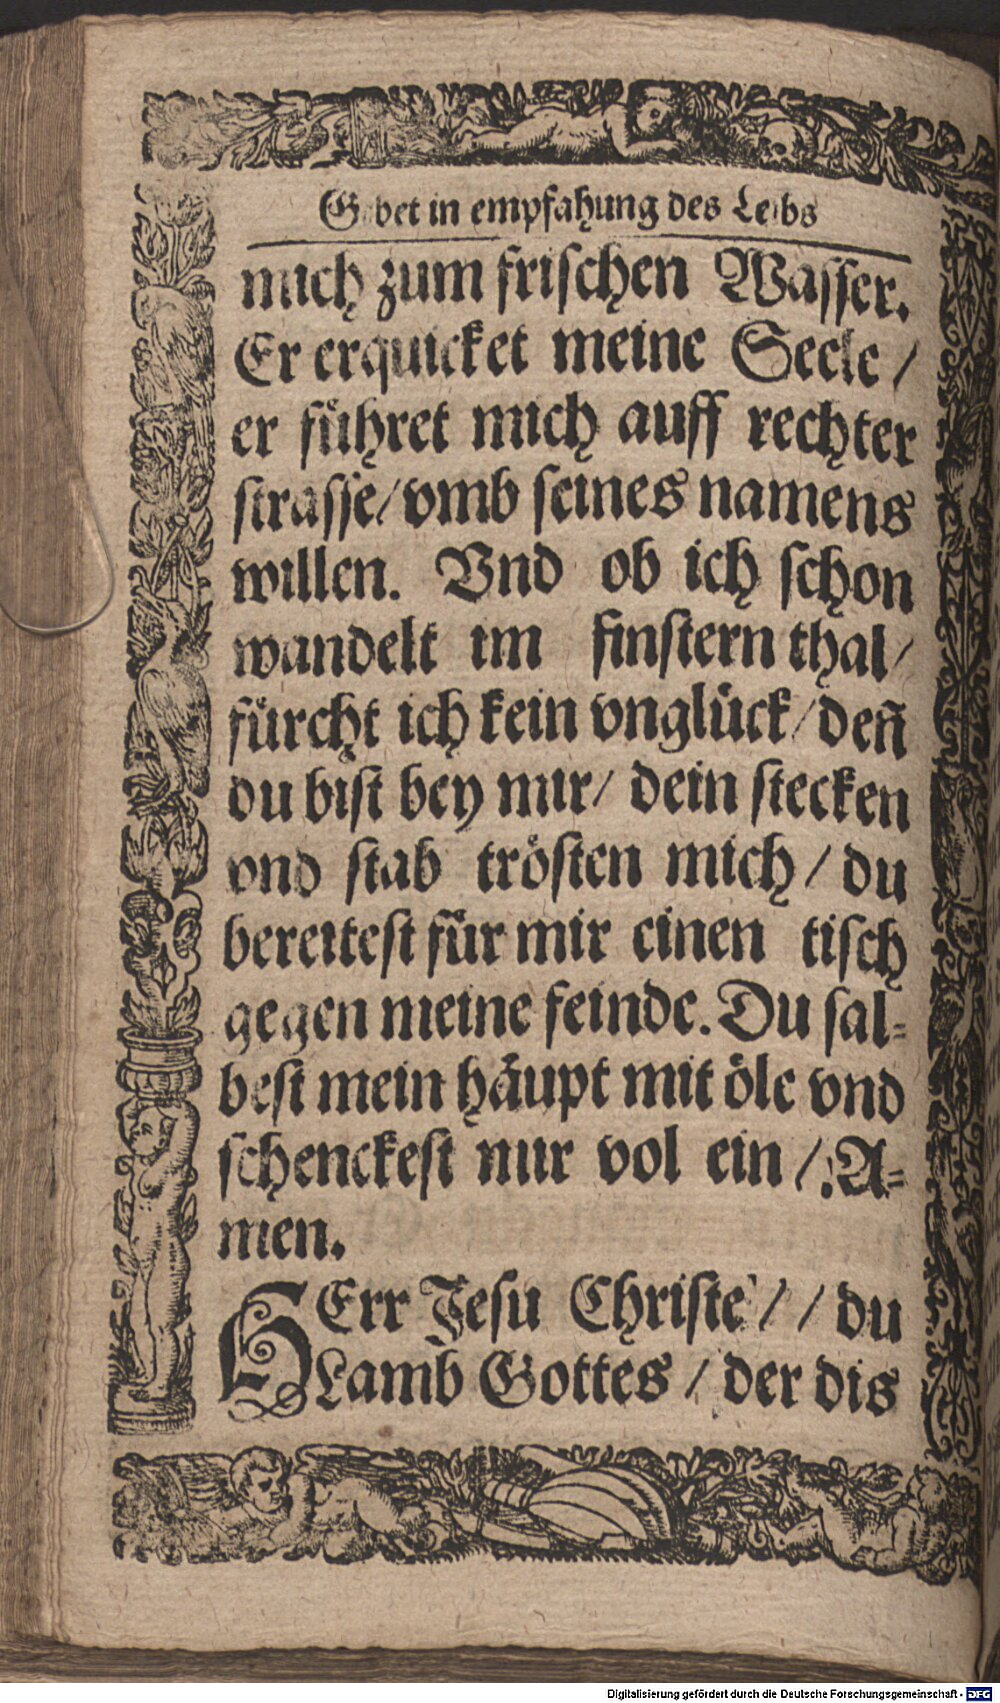 Gebet in empfahung des Leibs
mich zum frischen Wasser.
Er erquicket meine Seele /
er fuͤhret mich auff rechter
strasse / vmb seines namens
willen. Vnd ob ich schon
wandelt im finstern thal /
fuͤrcht ich kein vngluͤck / deñ
du bist bey mir / dein stecken
vnd stab troͤsten mich / du
bereitest fuͤr mir einen tisch
gegen meine feinde. Du sal⸗
best mein haͤupt mit oͤle vnd
schenckest mir vol ein / A⸗
men.
HErr Jesu Christe / / du
Lamb Gottes / der dis
Digitalisierung gefördert durch die Deutsche Forschungsgemeinschaft - DFG